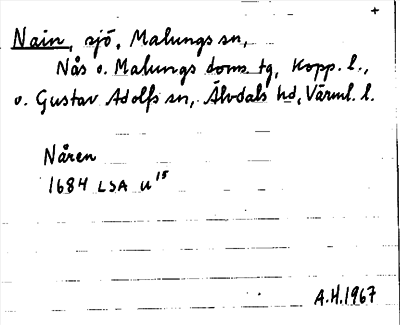 +
Nain, sjö, Malungs sn,
Nås o. Malungs doms. tg, Kopp. l.,
o. Gustav Adolfs sn, Älvdals hd, Värml. l.
Nåren
1684 LSA U 15
A.H. 1967